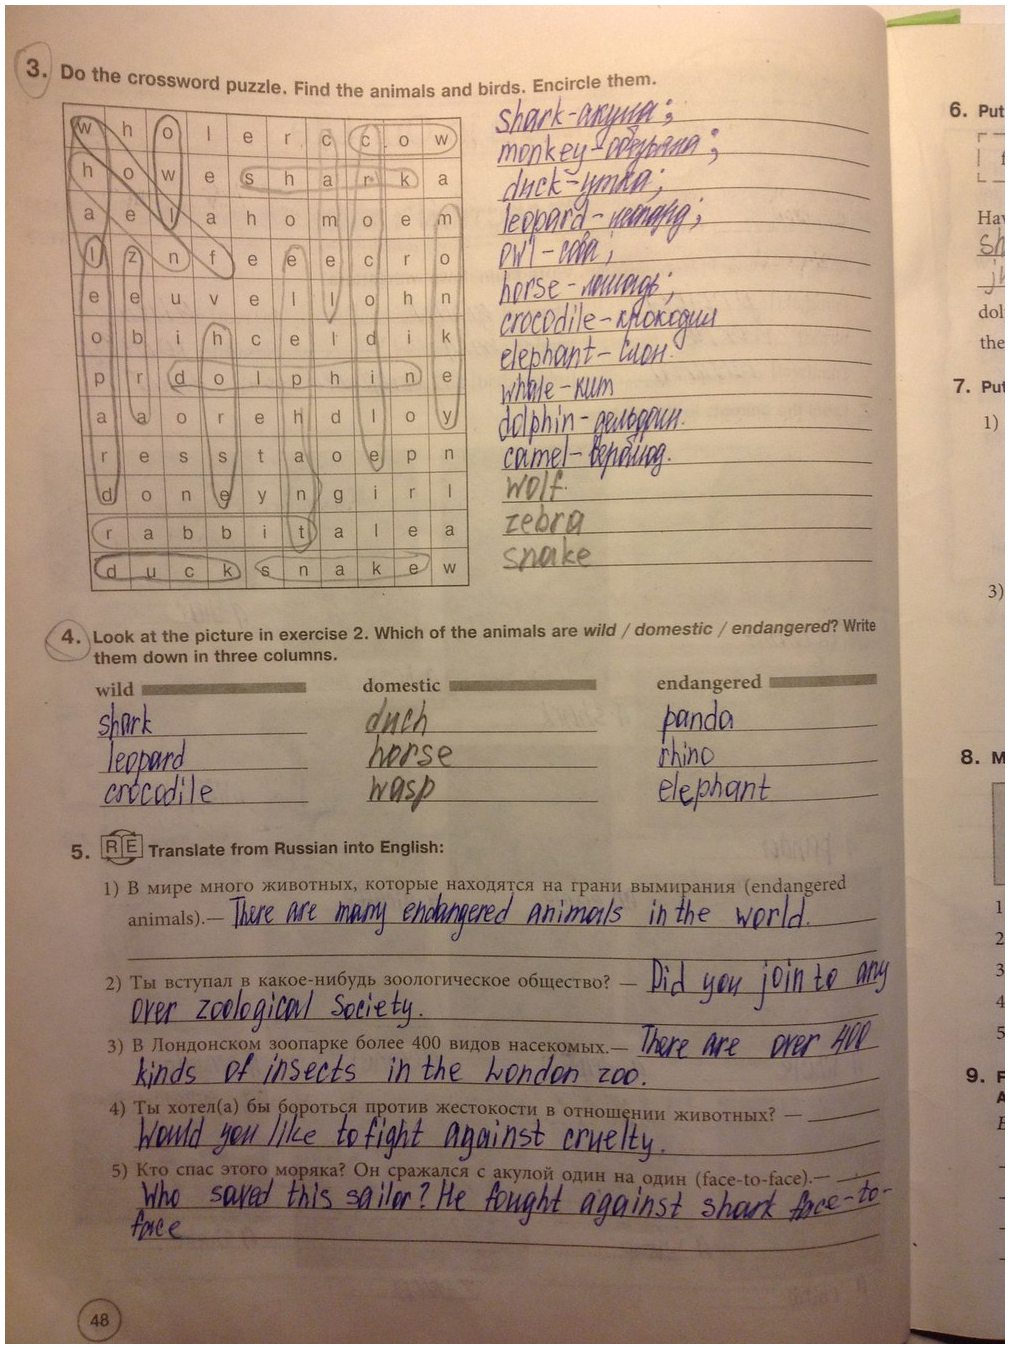 3. Do the crossword puzzle. Find the animals and birds. Encircle them.
w h o l e r c c o w
h o w e s h a r k a
a e l a h o m o e m
l z n f e e e c r o
e e u v e l l o h n
o b i h c e l d i k
p r d o l p h i n e
a a o r e h d l o y
r e s s t a o e p n
d o n e y n g i r l
r a b b i t a l e a
d u c k s n a k e w
shark-акула;
monkey-обезьяна;
duck-утка;
leopard-леопард;
owl-сова;
horse-лошадь;
crocodile-крокодил
elephant-слон.
whale-кит
dolphin-дельфин.
camel-верблюд.
wolf.
zebra
snake
4. Look at the picture in exercise 2. Which of the animals are wild / domestic / endangered? Write
them down in three columns.
wild domestic endangered
shark duch panda
leopard horse rhino
crocodile wasp elephant
5. RE Translate from Russian into English:
1) В мире много животных, которые находятся на грани вымирания (endangered
animals).— There are many endangered animals in the world.
2) Ты вступал в какое-нибудь зоологическое общество? — Did you join to any
over zoological Society.
3) В Лондонском зоопарке более 400 видов насекомых.— There are over 400
kinds of insects in the London zoo.
4) Ты хотел(а) бы бороться против жестокости в отношении животных? —
Would you like to fight against cruelty.
5) Кто спас этого моряка? Он сражался с акулой один на один (face-to-face).—
Who saved this sailor? He fought against shark face-to-
face
48
6. Put
Ha
sh
dol
the
7. Put
1)
3)
8. M
1
2
3
4
5
9. F
A